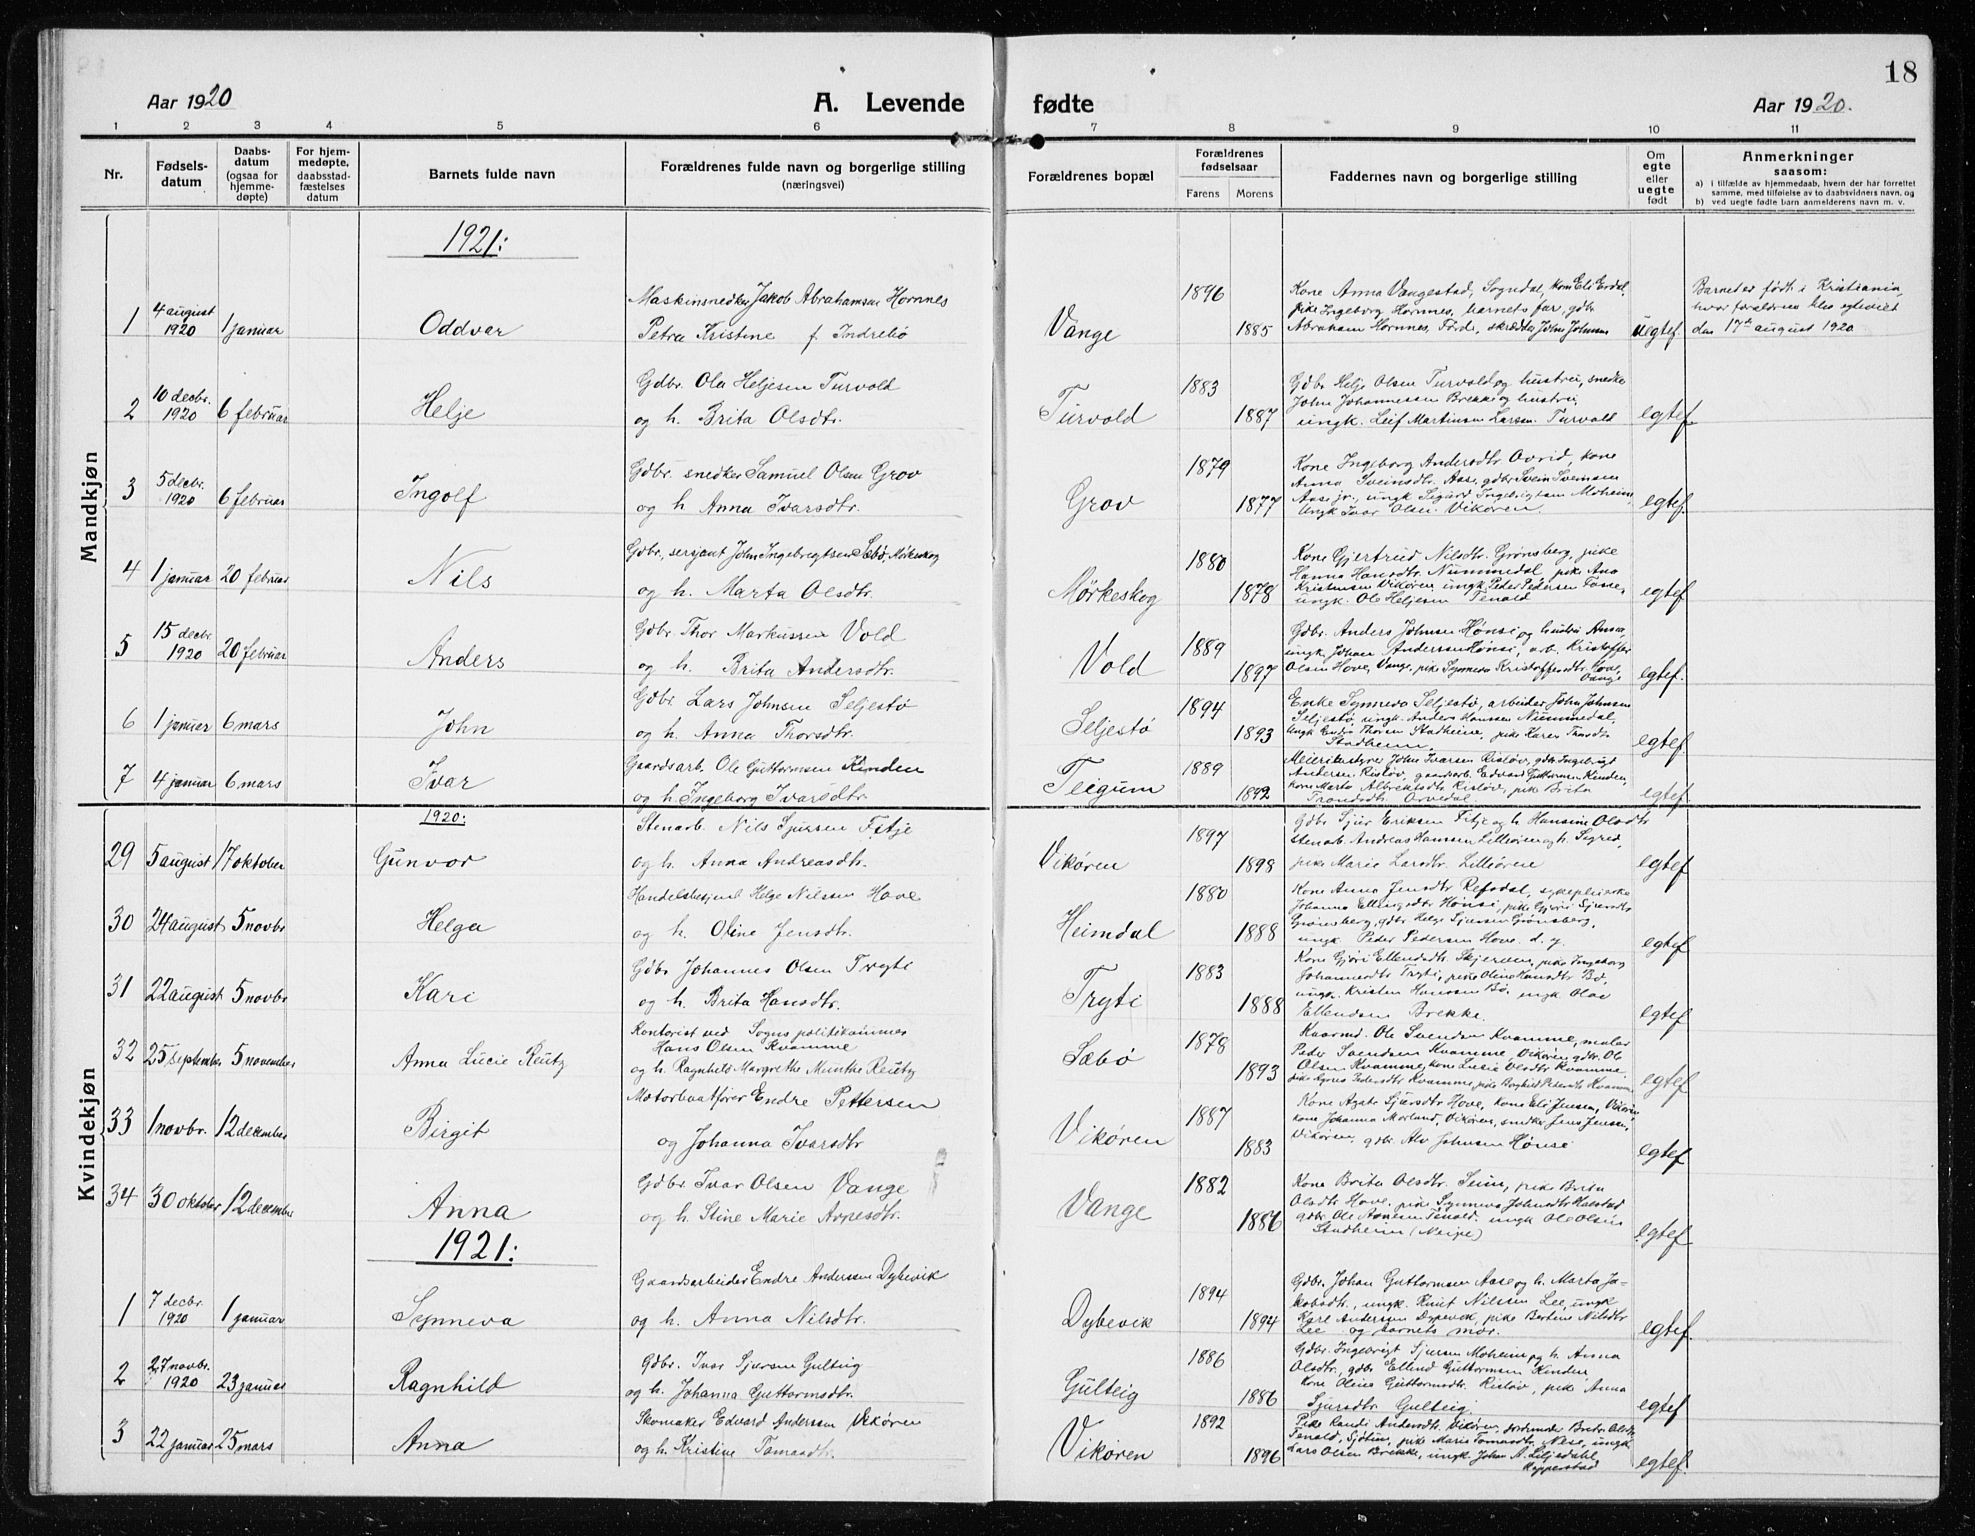 18
Aar 1920
A. Levende fødte
Aar 1920.
1 2 3 4 5 6 7 8 9 10 11
Nr.
Fødsels-
datum
Daabs-
datum
(ogsaa for
hjemme-
døpte)
For hjem-
medøpte,
daabsstad-
fæstelses
datum
Barnets fulde navn
Forældrenes fulde navn og borgerlige stilling
(næringsvei)
Forældrenes bopæl
Forældrenes
fødselsaar
Farens Morens
Faddernes navn og borgerlige stilling
Om
egte
eller
uegte
født
Anmerkninger
saasom:
a) i tilfælde av hjemmedaab, hvem der har forrettet
samme, med tilføielse av to daabsvidners navn, og
b) ved uegte fødte barn anmelderens navn m. v.
Mandkjøn
1921:
1 4 august 1920 1 januar Oddvar
Maskinsnedker Jakob Abrahamsen Hornnes
Petra Kristine f. Indrebø
Vange 1896 1885
Kone Anna Vangestad, Sogndal, kone Eli Erdal,
pike Ingeborg Hornnes, barnets far, gdbr
Abraham Hornnes, Førde, skrædder John Johnsen
uegtef.
Barnet er født i Kristiania,
hvor forældrene blev egteviet
den 17de august 1920
2 10 decbr. 1920 6 februar Helje
Gdbr. Ola Heljesen Turvold
og h. Brita Olsdtr.
Turvold 1883 1887
Gdbr Helje Olsen Turvold og hustru, snedker
John Johannessen Brekke og hustru,
ungk. Leif Martinsen Larsen Turvold
egtef.
3 5 decbr. 1920 6 februar Ingolf
Gdbr. snedker Samuel Olsen Grov
og h Anna Ivarsdtr.
Grov 1879 1877
Kone Ingeborg Andersdtr Ovrid, kone
Anna Sveinsdtr. Aase, gdbr Svein Sveinsen
Aase jr., ungk Sigurd Ingebrigtsen Moheim,
Ungk Ivar Olsen Vikøren.
egtef.
4 1 januar 20 februar Nils
Gdbr., sersjant John Ingebrigtsen Sæbø, Mørkeskog
og h. Marta Olsdtr.
Mørkeskog 1880 1878
Kone Gjertrud Nilsdtr. Grønsberg, pike
Hanna Hansdtr. Nummedal, pike Ana
Kristensen Vikøren, ungk Peder Pedersen Fosse,
ungk. Ole Heljesen Tenold
egtef.
5 15 decbr 1920 20 februar Anders
Gdbr. Thor Markussen Vold
og h. Brita Andersdtr.
Vold 1889 1897
Gdbr. Anders Johnsen Hønsi og hustru Anna,
ungk Johan Anderssen Hønsi, arb. Kristoffer
Olsen Hove, Vange, pike Synneva Kristoffersdtr. Hove,
Vange
egtef.
6 1 januar 6 mars John
Gdbr. Lars Johnsen Seljestø
og h. Anna Thorsdtr.
Seljestø 1894 1893
Enke Synneva Seljestø, arbeider John Johnsen
Seljestø, ungk. Anders Hanssen Nummedal,
Ungk Endre Thorsen Stadheim, pike Karen Thorsdtr
Stadheim.
egtef.
7 4 januar 6 mars Ivar
Gaardsarb. Ole Guttormsen Kinden
og h. Ingeborg Ivarsdtr.
Teigum 1889 1892
Meieribestyrer John Ivarsen Risløv, gdbr Ingebrigt
Andersen Risløv, gaardsarb. Edvard Guttormsen Kinden,
kone Marta Albrektsdtr Risløv, pike Brita
Trondsdtr. Orvedal
egtef.
Kvindekjøn
1920:
29 5 august 17 oktober Gunvor
Stenarb. Nils Sjursen Fitje
og h. Anna Andreasdtr.
Vikøren 1897 1898
Gdbr Sjur Eriksen Fitje og h. Hansine Olsdtr
stenarb. Andreas Hansen Lilleøren og h. Sigrid,
pike Marie Larsdtr. Lilleøren
egtef
30 24 august 5 novbr Helga
Handelsbetjent Helge Nilssen Hove
og h. Oline Jensdtr.
Heimdal 1880 1888
Kone Anna Jensdtr Refsdal, sykepleierske
Johanna Ellingsdtr Hønsi, pike Gjøri Sjursdtr
Grønsberg, gdbr Helge Sjursen Grønsberg,
ungk. Peder Pedersen Hove d. y.
egtef
31 22 august 5 novbr Kari
Gdbr Johannes Olsen Tryti
og h. Brita Hansdtr.
Tryti 1883 1888
Kone Gjøri Ellendsdtr Skjerven, pike Ingeborg
Johannesdtr Tryti, pike Oline Hansdtr Bø,
ungk. Kristen Hanssen Bø. ungk Olav
Ellendsen Brekke.
egtef
32 25 september 5 november Anna Lucie Reutz
Kontorist ved Sogns politikammer
Hans Olsen Kvamme
og h. Ragnhild Margrethe Munthe Reutz
Sæbø 1878 1893
Kaarmd. Ole Svendsen Kvamme, maler
Peder Svendsen Kvamme, Vikøren, gdbr Ole
Olsen Kvamme, kone Lucie Olsdtr Kvamme,
pike Agnes Pedersdtr Kvamme, pike Borghild Pedersdtr Kvamme
egtef
33 1 novbr. 12 december Birgit
Motorbaatfører Endre Pettersen
og Johanna Ivarsdtr
Vikøren 1887 1883
Kone Agate Sjursdtr Hove, kone Eli Jensen, Vikøren,
kone Johanna Morlund, Vikøren, snedker Jens Jensen,
Vikøren, gdbr. Alv Johnsen Hønsi
egtef
34 30 oktober 12 december Anna
Gdbr. Ivar Olsen Vange
og h. Stine Marie Arnesdtr.
Vange 1882 1886
Kone Brita Olsdtr. Seim, pike Brita
Olsdtr Hove, pike Synneva Johnsdtr Halstad
gdbr. Ole Arnesen Tenold, ungk Ole Olsen
Stadheim (Neipe)
egtef
1921:
1 7 decbr. 1920 1 januar Synneva
Gaardsarbeider Endre Anderssen Dybevik
og h. Anna Nilsdtr.
Dybevik 1894 1894
Gdbr. Johan Guttormsen Aase og h. Marta Ja-
kobsdtr., ungk. Knut Nilssen Lee, ungk
Karl Andersen Dypevik, pike Bertine Nilsdtr
Lee og barnets mor.
egtef.
2 27 novbr. 1920 23 januar Ragnhild
Gdbr. Ivar Sjursen Gulteig
og h. Johanna Guttormsdtr.
Gulteig 1886 1886
Gdbr. Ingebrigt Sjursen Moheim og h. Anna
Olsdtr., gdbr Ellend Guttormsen Kinden
Kone Oline Guttormsdtr. Risløv, pike Anna
Sjursdtr Gulteig.
egtef
3 22 januar 25 mars Anna
Skomaker Edvard Anderssen Vikøren
og h. Kristine Tomasdtr.
Vikøren 1892 1896
Pike Randi Andersdtr. Vikøren, jordmoder Brita Olsdtr
Tenold, Sjøtun, pike Marie Tomasdtr Nese, ungk
Lars Olsen Brekke, ungk Johan A. Liljedahl
Hopperstad
egtef.